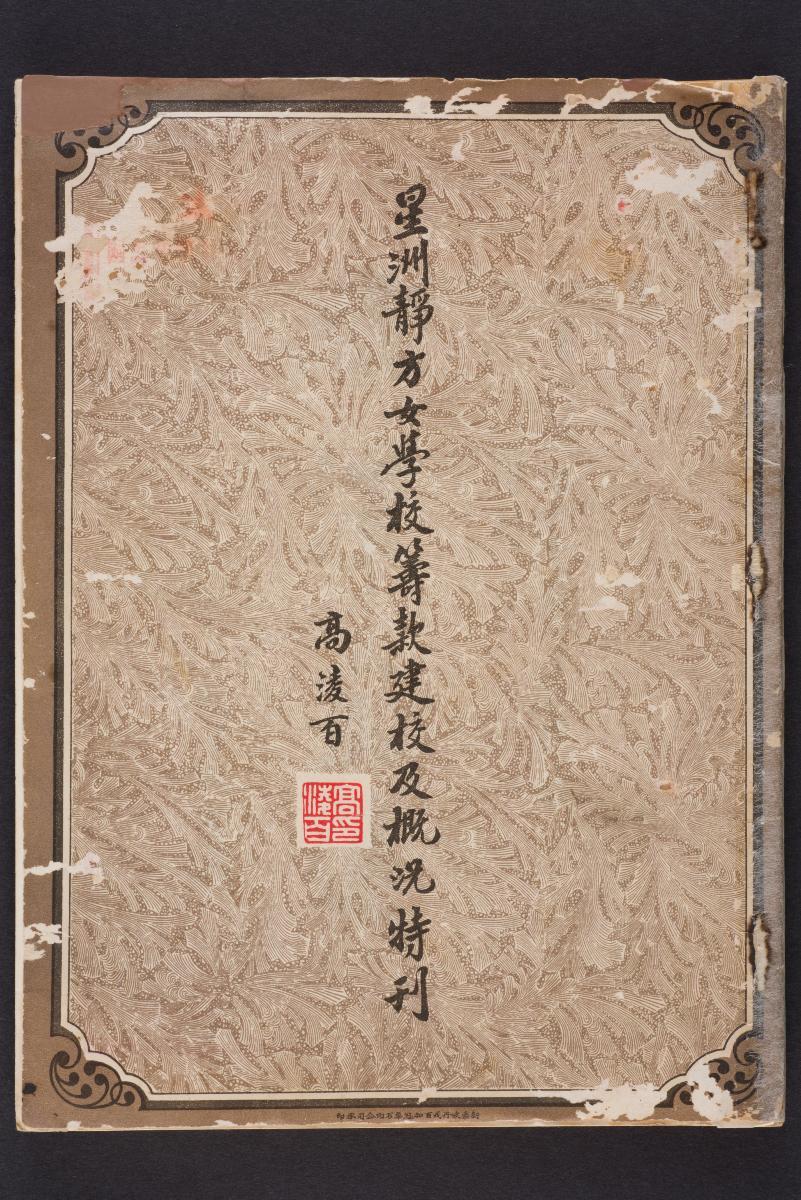 星洲靜方女學校籌款建校及概況特刊
高淩百
高淩百印